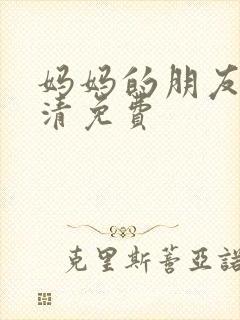 妈妈的朋友
清免费
克里斯蒂亚諾